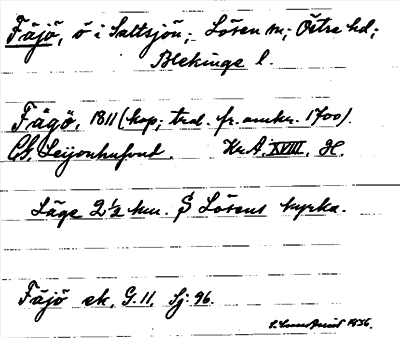 Fäjö, ö i Saltsjön; Lösen sn; Östra hd;
Blekinge l.
Fägö, 1811 (kop; trol. fr. omkr. 1700).
Ch. Leijonhufvud. Kr.A. XVIII. H.
Läge 2½ km. S Lösens kyrka.
Fäjö ek. G. 11. Sj: 96.
1936.